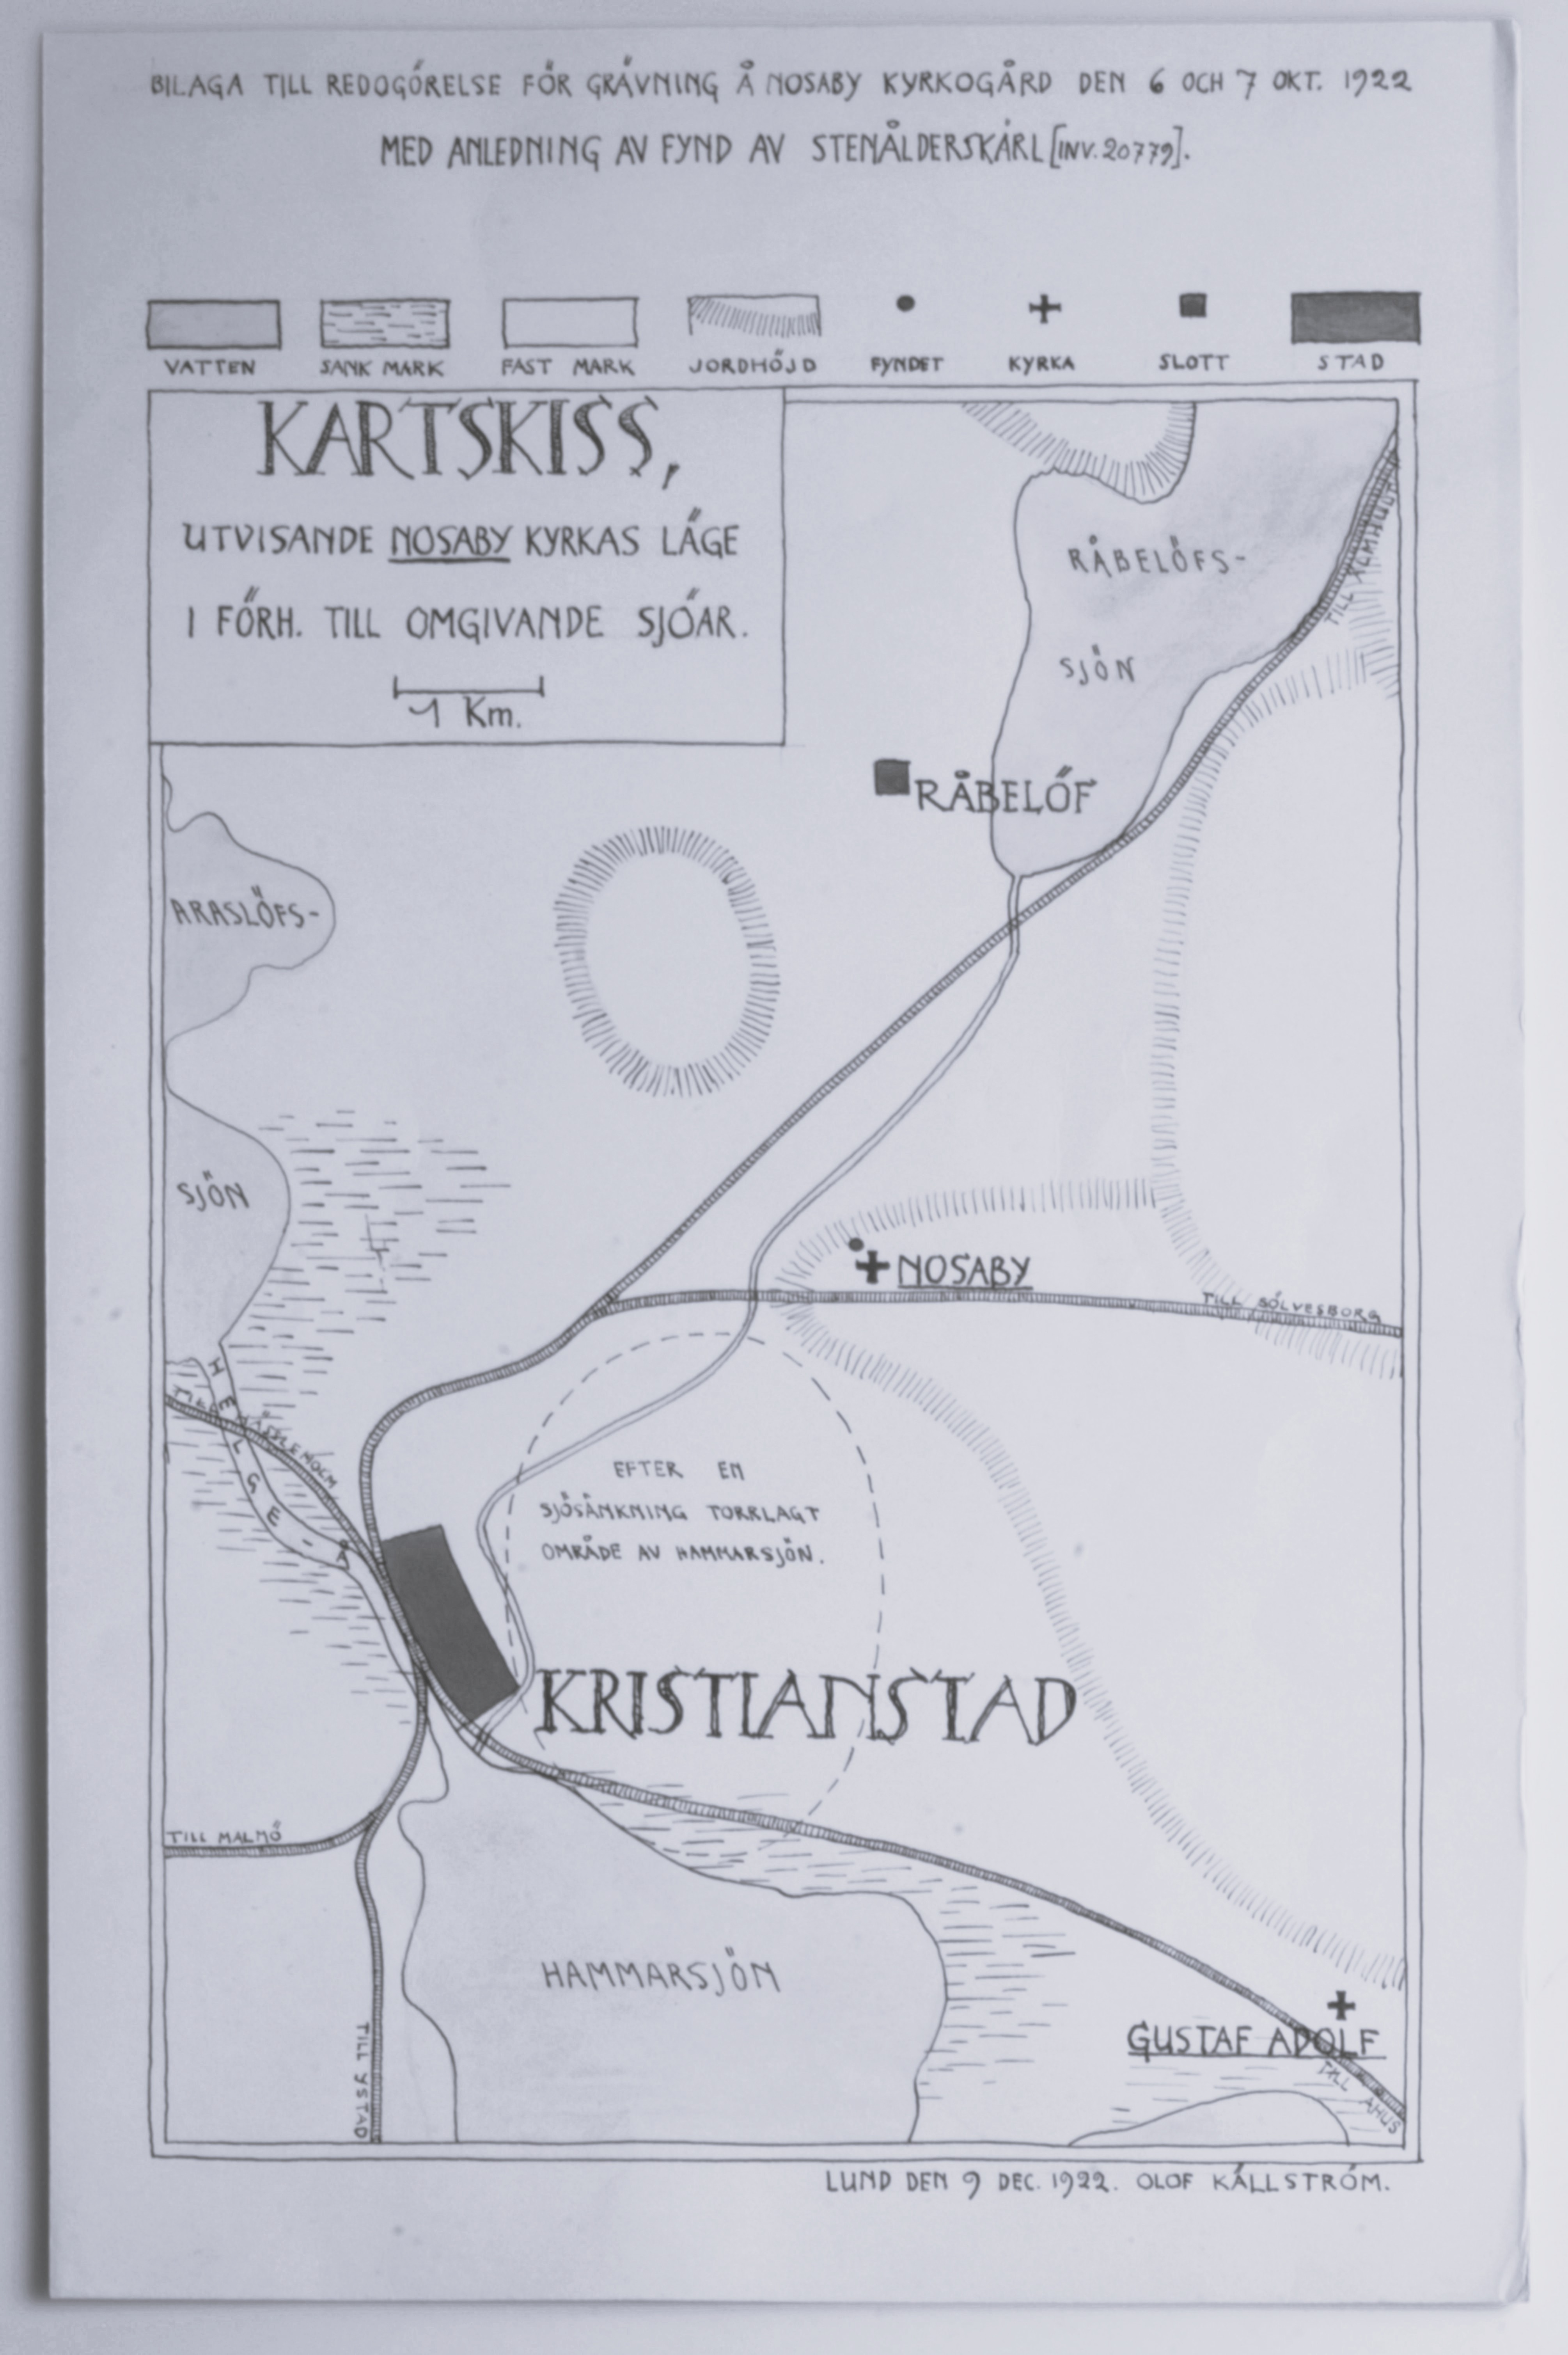 BILAGA TILL REDOGÖRELSE FÖR GRÄVNING Å NOSABY KYRKOGÅRD DEN 6 OCH 7 OKT. 1922
MED ANLEDNING AV FYND AV STENÅLDERSKÄRL [INV. 20779].
VATTEN
SANK MARK
FAST MARK
JORDHÖJD
FYNDET
KYRKA
SLOTT
STAD
KARTSKISS,
UTVISANDE NOSABY KYRKAS LÄGE
I FÖRH. TILL OMGIVANDE SJÖAR.
1 Km.
RÅBELÖFS-
SJÖN
TILL ÄLMHULT
RÅBELÖF
ARASLÖFS-
SJÖN
NOSABY
TILL SÖLVESBORG
HELGE-Å
TILL HÄSSLEHOLM
EFTER EN
SJÖSÄNKNING TORRLAGT
OMRÅDE AV HAMMARSJÖN.
KRISTIANSTAD
TILL MALMÖ
HAMMARSJÖN
TILL YSTAD
GUSTAF ADOLF
TILL ÅHUS
LUND DEN 9 DEC. 1922. OLOF KÄLLSTRÖM.